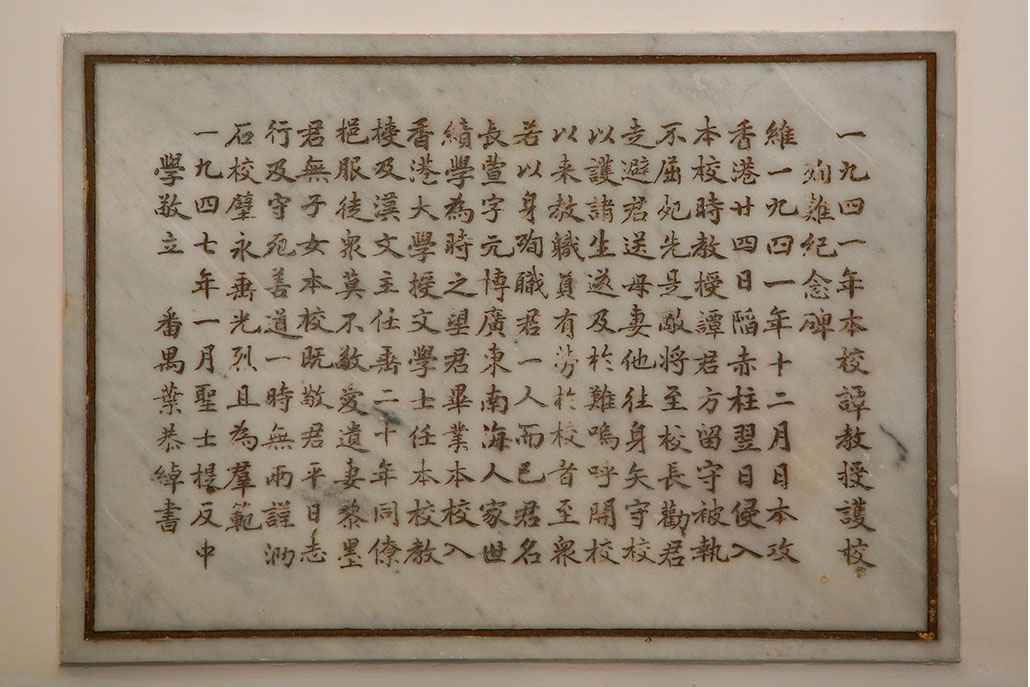 一九四一年本校譚教授護校
殉難紀念碑
維一九四一年十二月日本攻
香港廿四日陷赤柱翌日侵入
本校時教授譚君方留守被執
不屈死先是敵將至校長勸君
走避君送母妻他往身矢守校
以護諸生遂及於難嗚呼開校
以来教職員有勞於校者至衆
若以身殉職君一人而已君名
長萱字元博廣東南海人家世
績學為時之望君畢業本校入
香港大學授文學士任本校教
椄及漢文主任垂二十年同僚
挹服徒衆莫不敬愛遺妻黎墨
君無子女本校既敬君平日志
行及守死善道一時無兩謹泐
石校壁永垂光烈且為羣範
一九四七年一月聖士提反中
學敬立　番禺葉恭綽書